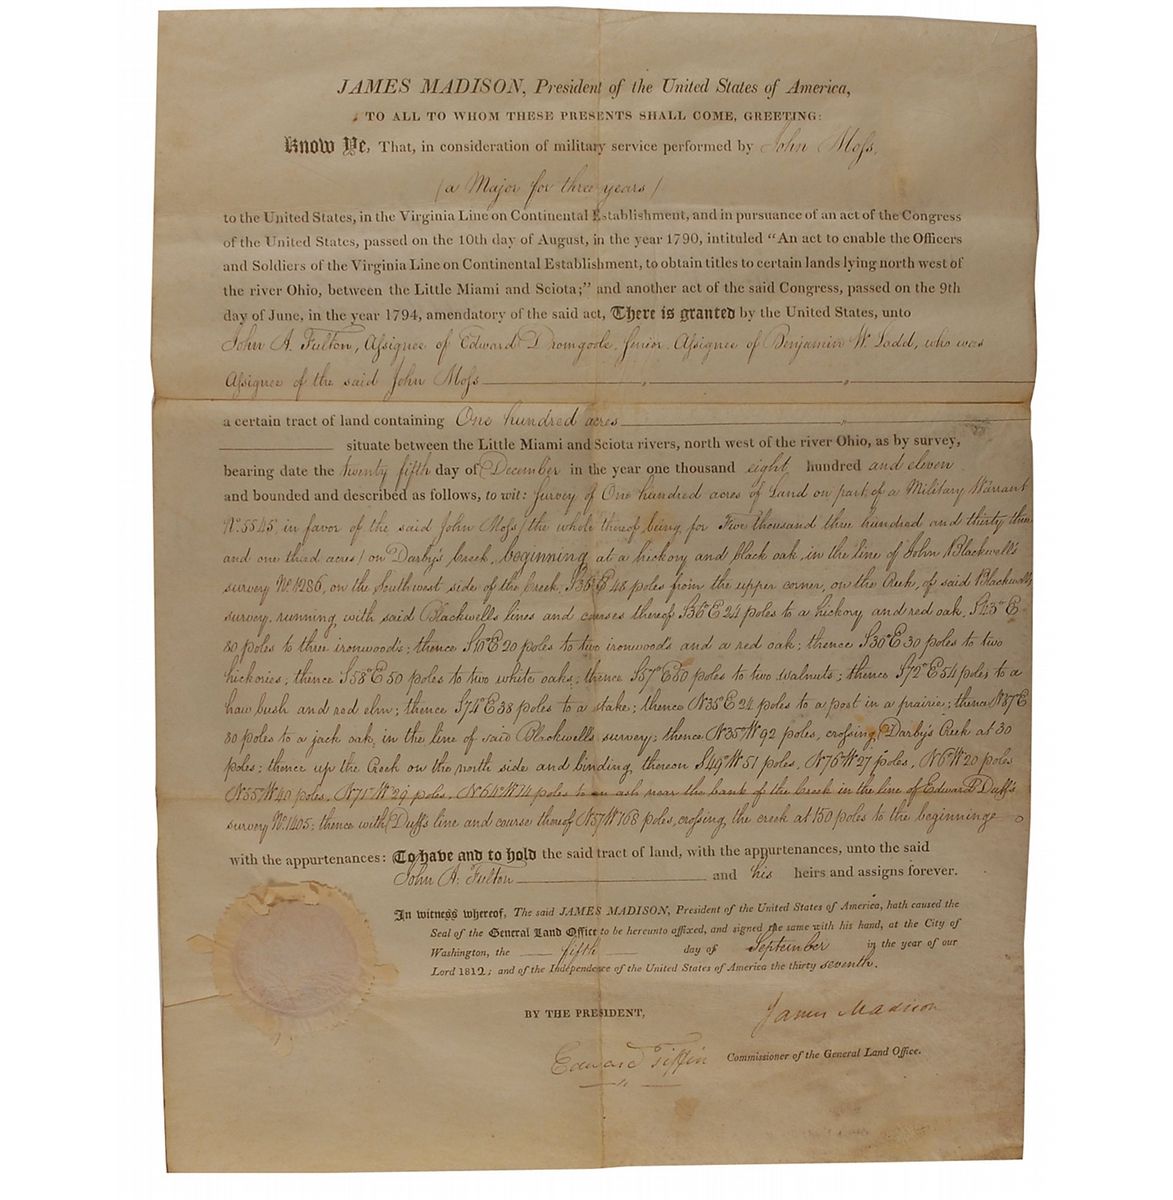 JAMES MADISON, President of the United States of America,
TO ALL TO WHOM THESE PRESENTS SHALL COME, GREETING:
Know Ye, That, in consideration of military service performed by John Moss,
(a Major for three years)
to the United States, in the Virginia Line on Continental Establishment, and in pursuance of an act of the Congress
of the United States, passed on the 10th day of August, in the year 1790, intituled "An act to enable the Officers
and Soldiers of the Virginia Line on Continental Establishment, to obtain titles to certain lands lying north west of
the river Ohio, between the Little Miami and Sciota;" and another act of the said Congress, passed on the 9th
day of June, in the year 1794, amendatory of the said act, There is granted by the United States, unto
John A. Fulton, Assignee of Edward Dromgoole, Senior, Assignee of Benjamin W. Ladd, who was
Assignee of the said John Moss
a certain tract of land containing One hundred acres
situate between the Little Miami and Sciota rivers, north west of the river Ohio, as by survey,
bearing date the twenty fifth day of December in the year one thousand eight hundred and eleven
and bounded and described as follows, to wit: Survey of One hundred acres of Land on part of a Military Warrant
No. 5545, in favor of the said John Moss (the whole thereof being for Five thousand three hundred and thirty three
and one third acres) on Darby's Creek, beginning at a hickory and black oak, in the line of John Blackwell's
survey No. 4286, on the Southwest side of the Creek, S36°E 48 poles from the upper corner, on the Creek, of said Blackwell's
survey, running with said Blackwells lines and courses thereof S36°E 24 poles to a hickory and red oak, S43°E
80 poles to three ironwoods; thence S10°E 20 poles to two ironwoods and a red oak; thence S30°E 30 poles to two
hickories; thence S58°E 50 poles to two white oaks; thence S57°E 80 poles to two walnuts; thence S72°E 54 poles to a
haw bush and red elm; thence S74°E 38 poles to a stake; thence N35°E 24 poles to a post in a prairie; thence N87°E
80 poles to a jack oak, in the line of said Blackwell's survey; thence N35°W 92 poles, crossing Darby's Creek at 30
poles; thence up the Creek on the north side and binding thereon S49°W 51 poles, N76°W 27 poles, N6°W 20 poles
N55°W 40 poles, N71°W 29 poles, N64°W 14 poles to an ash near the bank of the Creek in the line of Edward Duff's
survey No. 1405; thence with Duff's line and course thereof N57°W 168 poles, crossing the creek at 150 poles to the beginninge
with the appurtenances: To have and to hold the said tract of land, with the appurtenances, unto the said
John A. Fulton and his heirs and assigns forever.
In witness whereof, The said JAMES MADISON, President of the United States of America, hath caused the
Seal of the General Land Office to be hereunto affixed, and signed the same with his hand, at the City of
Washington, the fifth day of September in the year of our
Lord 1812; and of the Independence of the United States of America the thirty seventh.
BY THE PRESIDENT,
James Madison
Edward Tiffin Commissioner of the General Land Office.